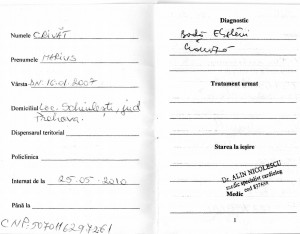 Numele CRIVĂT
Prenumele MARIUS
Vârsta DN. 16.01.2007
Domiciliul Loc. jud
Prahova
Dispensarul teritorial
Policlinica
Internat de la 25.05.2010
Până la
CNP-5070116297261
Diagnostic
Boală
Tratament urmat
Starea la ieșire
Dr. ALIN NICOLESCU
medic specialist cardiolog
cod
Medic
1